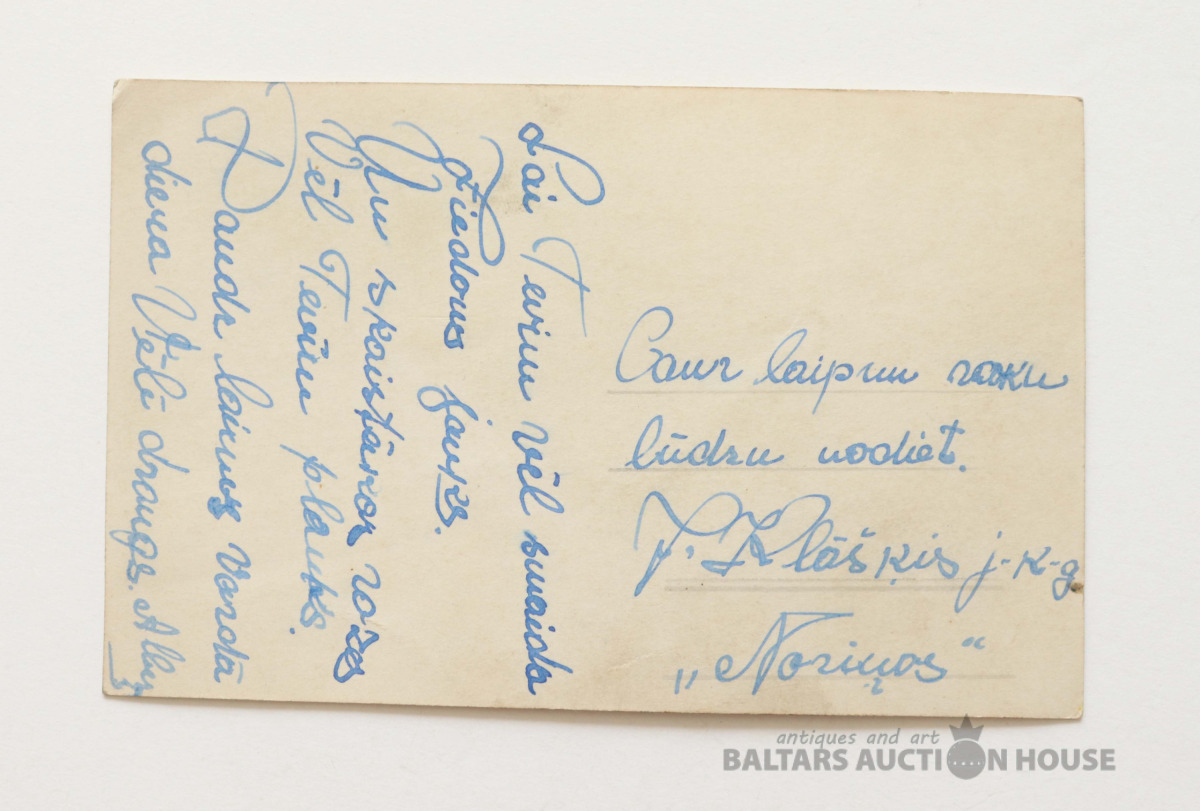 Lai Tevim vēl smaida
Ziedons jauks.
Un skaistākas rozes
Vēl Tevim plauks.
Daudz laimes Varda
diena Vēlē draugs.
Caur laipnu roku
lūdzu nodiet.
Klāškis j-k-g
„Noriņos“
antiques and art
BALTARS AUCTION HOUSE